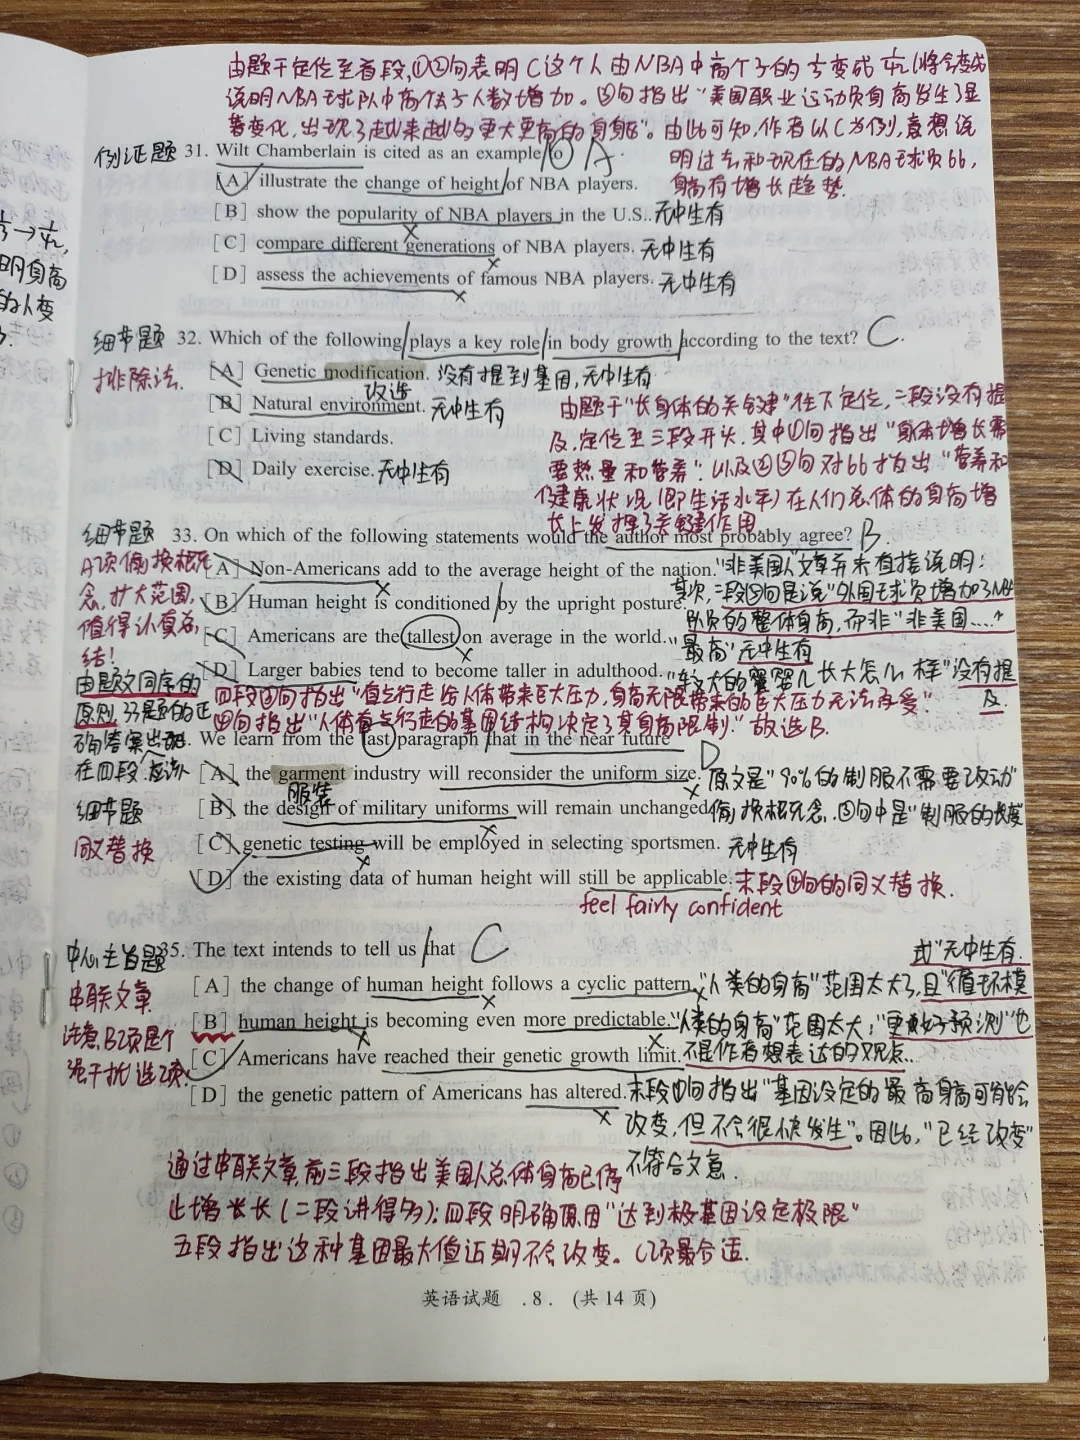 由题干定位至首段,①②句表明C这个人由NBA中高个子的
说明NBA球队中高个子人数增加。⑤句指出"美国职业运动员身高发生了显
著变化,出现了越来越多的更大更高的身躯"。由此可知,作者以C为例,意想说
明过去和现在的NBA球员比,
身高有增长趋势.
例证题 31. Wilt Chamberlain is cited as an example to A.
[A] illustrate the change of height of NBA players.
[B] show the popularity of NBA players in the U.S. 无中生有
[C] compare different generations of NBA players. 无中生有
[D] assess the achievements of famous NBA players. 无中生有
细节题 32. Which of the following plays a key role in body growth according to the text? C.
排除法. [A] Genetic modification. 没有提到基因,无中生有
改造
[B] Natural environment. 无中生有
由题干"长身体的关键"往下定位,二段没有提
[C] Living standards.
及,定位至三段开头.其中①句指出"身体增长需
要热量和营养".以及②③句对比指出"营养和
[D] Daily exercise. 无中生有
健康状况(即生活水平)在人们总体的身高增
长上发挥了关键作用
细节题 33. On which of the following statements would the author most probably agree? B.
A项偷换概念,扩大范围,值得认真总结!
[A] Non-Americans add to the average height of the nation. "非美国人"文章并未直接说明;
[B] Human height is conditioned by the upright posture. 其次,二段⑤句是说"外国球员增加了NBA
队员的整体身高,而非"非美国……"
[C] Americans are the tallest on average in the world. "最高"无中生有
[D] Larger babies tend to become taller in adulthood. "较大的婴儿长大怎么样"没有提及.
由题文同序的原则 33题的正确答案出现在四段
四段③句指出"直立行走给人体带来巨大压力,身高无限带来的巨大压力无法承受".
④句指出"人体直立行走的基因结构,决定了其身高限制". 故选B.
We learn from the last paragraph that in the near future D
[A] the garment industry will reconsider the uniform size. 原文是"90%的制服不需要改动"
服装
细节题 [B] the design of military uniforms will remain unchanged 偷换概念. ③句中是"制服的长度
同义替换 [C] genetic testing will be employed in selecting sportsmen. 无中生有
[D] the existing data of human height will still be applicable. 末段④句的同义替换.
feel fairly confident
中心主旨题 35. The text intends to tell us that C
式"无中生有.
串联文章. [A] the change of human height follows a cyclic pattern. "人类的身高"范围太大了,且"循环模
注意,B项是个强干扰选项. [B] human height is becoming even more predictable. "人类的身高"范围太大;"更好预测"也
不是作者想表达的观点..
[C] Americans have reached their genetic growth limit.
[D] the genetic pattern of Americans has altered. 末段①句指出"基因设定的最高身高可能会
改变,但不会很快发生"。因此,"已经改变"
不符合文意.
通过串联文章,前三段指出美国人总体身高已停
止增长(二段讲得多);四段明确原因"达到极基因设定极限"
五段指出这种基因最大值近期不会改变。C项最合适.
英语试题 . 8 . (共 14 页)